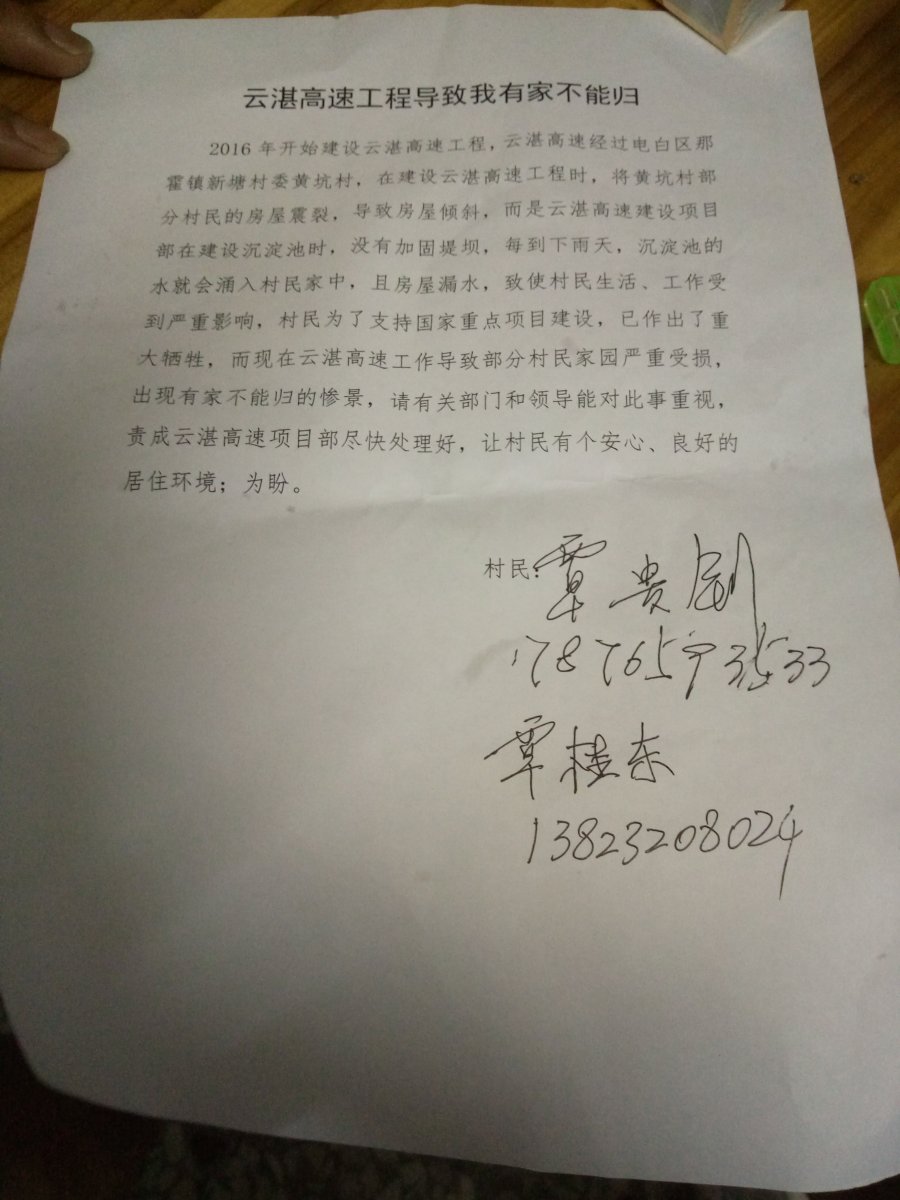 云湛高速工程导致我有家不能归
2016年开始建设云湛高速工程，云湛高速经过电白区那
霍镇新塘村委黄坑村，在建设云湛高速工程时，将黄坑村部
分村民的房屋震裂，导致房屋倾斜，而是云湛高速建设项目
部在建设沉淀池时，没有加固堤坝，每到下雨天，沉淀池的
水就会涌入村民家中，且房屋漏水，致使村民生活、工作受
到严重影响，村民为了支持国家重点项目建设，已作出了重
大牺牲，而现在云湛高速工作导致部分村民家园严重受损，
出现有家不能归的惨景，请有关部门和领导能对此事重视，
责成云湛高速项目部尽快处理好，让村民有个安心、良好的
居住环境；为盼。
村民：覃贵
覃桂东
13823208024